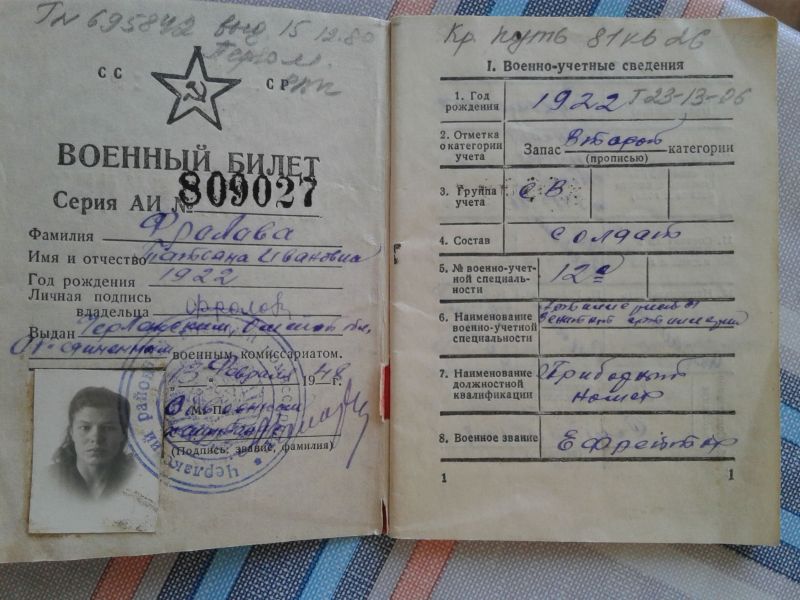 ТП 695842 выд. 15.12.80
СС СР
ВОЕННЫЙ БИЛЕТ
Серия АИ № 809027
Фамилия Фролова
Имя и отчество Татьяна Ивановна
Год рождения 1922
Личная подпись
владельца Фролова
Выдан Черлакским, Омской обл.
Объединенным военным комиссариатом.
13 февраля 1948 г.
М. П.
(Подпись: звание, фамилия)
Кр. путь 81 кв 26
I. Военно-учетные сведения
1. Год рождения 1922 Т 23-13-06
2. Отметка о категории учета Запас второй категории
(прописью)
3. Группа учета СВ
4. Состав солдат
5. № военно-учетной специальности 12
6. Наименование военно-учетной специальности
7. Наименование должностной квалификации номер
8. Военное звание Ефрейтор
1 1